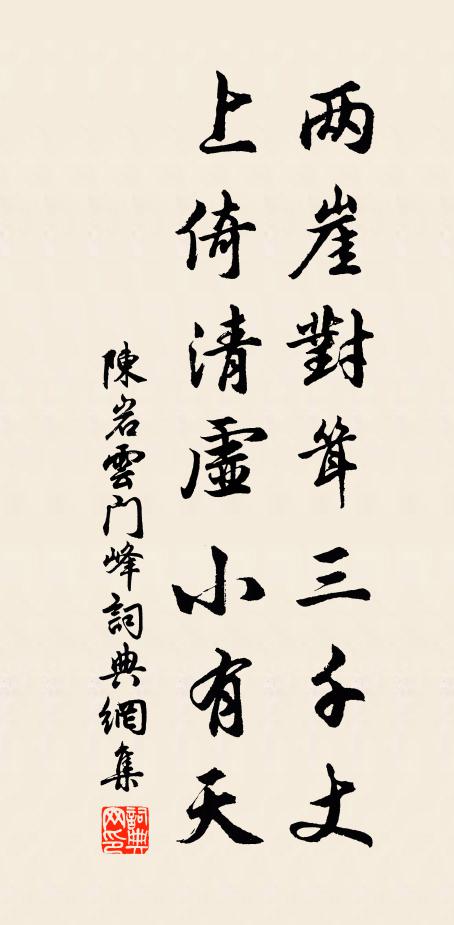 两崖對耸三千丈
上倚清虛小有天
陳岩雲门峰詞典網集
詞典网印